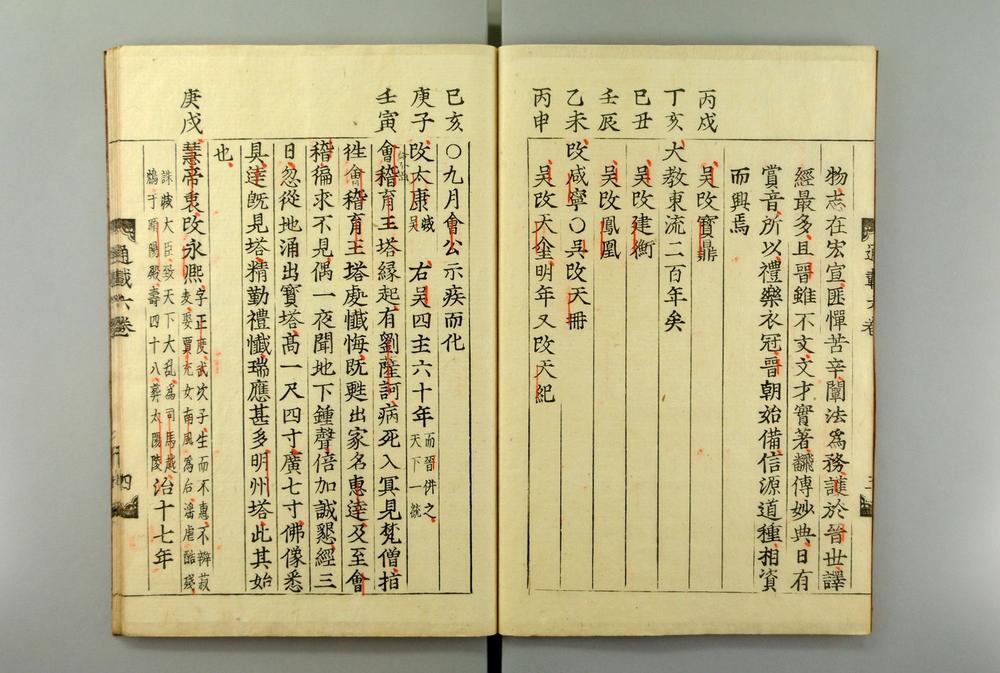 物志在宏宣匪憚苦辛闡法為務護於晉世譯
經最多且晉雖不文文才實著翻傳妙典日有
賞音所以禮樂衣冠晉朝始備信源道種相資
而興焉
丙戌 吳改寶鼎
丁亥 大教東流二百年矣
己丑 吳改建衡
壬辰 吳改鳳凰
乙未 改咸寧〇吳改天冊
丙申 吳改天璽明年又改天紀
己亥 〇九月會公示疾而化
庚子 改太康 滅吳 右吳四主六十年 而晉併之天下一統
壬寅 會稽育王塔縁起有劉薩訶病死入冥見梵僧指
徃會稽育王塔處懺悔既甦出家名惠逹及至會
稽徧求不見偶一夜聞地下鍾聲倍加誠懇經三
日忽從地涌出寳塔高一尺四寸廣七寸佛像悉
具逹既見塔精勤禮懺瑞應甚多明州塔此其始
也
庚戌 慧帝衷改永熈 字正度武次子生而不惠不辨菽麦娶賈充女南風為后滛虐酷殘
誅戮大臣致天下大乱為司馬越鴆于顕陽殿壽四十八葬太陽陵 治十七年
通載六卷
四